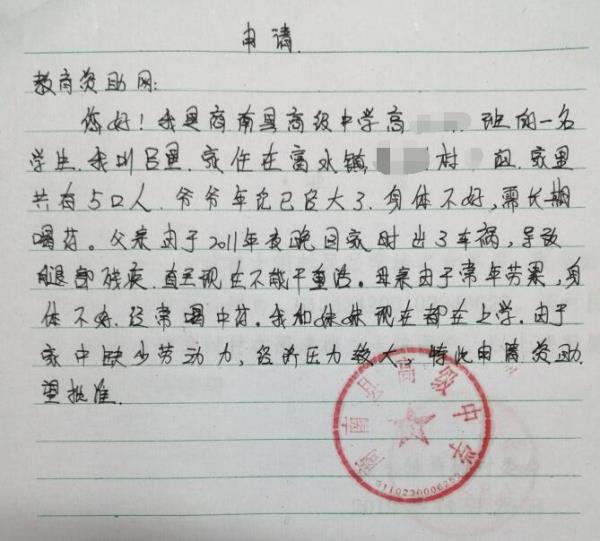 申请
教育资助网:
您好！我是商南县高级中学高 班的一名
学生.我叫吕里.家住在富水镇, 村 四.家里
共有5口人.爷爷年纪已经大了.身体不好,需长期
喝药。父亲由于2011年夜晚回家时出了车祸,导致
腿部残疾.直至现在不能干重活。母亲由于常年劳累,身
体不好.经常喝中药。我和妹妹现在都在上学。由于
家中缺少劳动力,经济压力较大,特此申请资助
望批准.
商南县高级中学